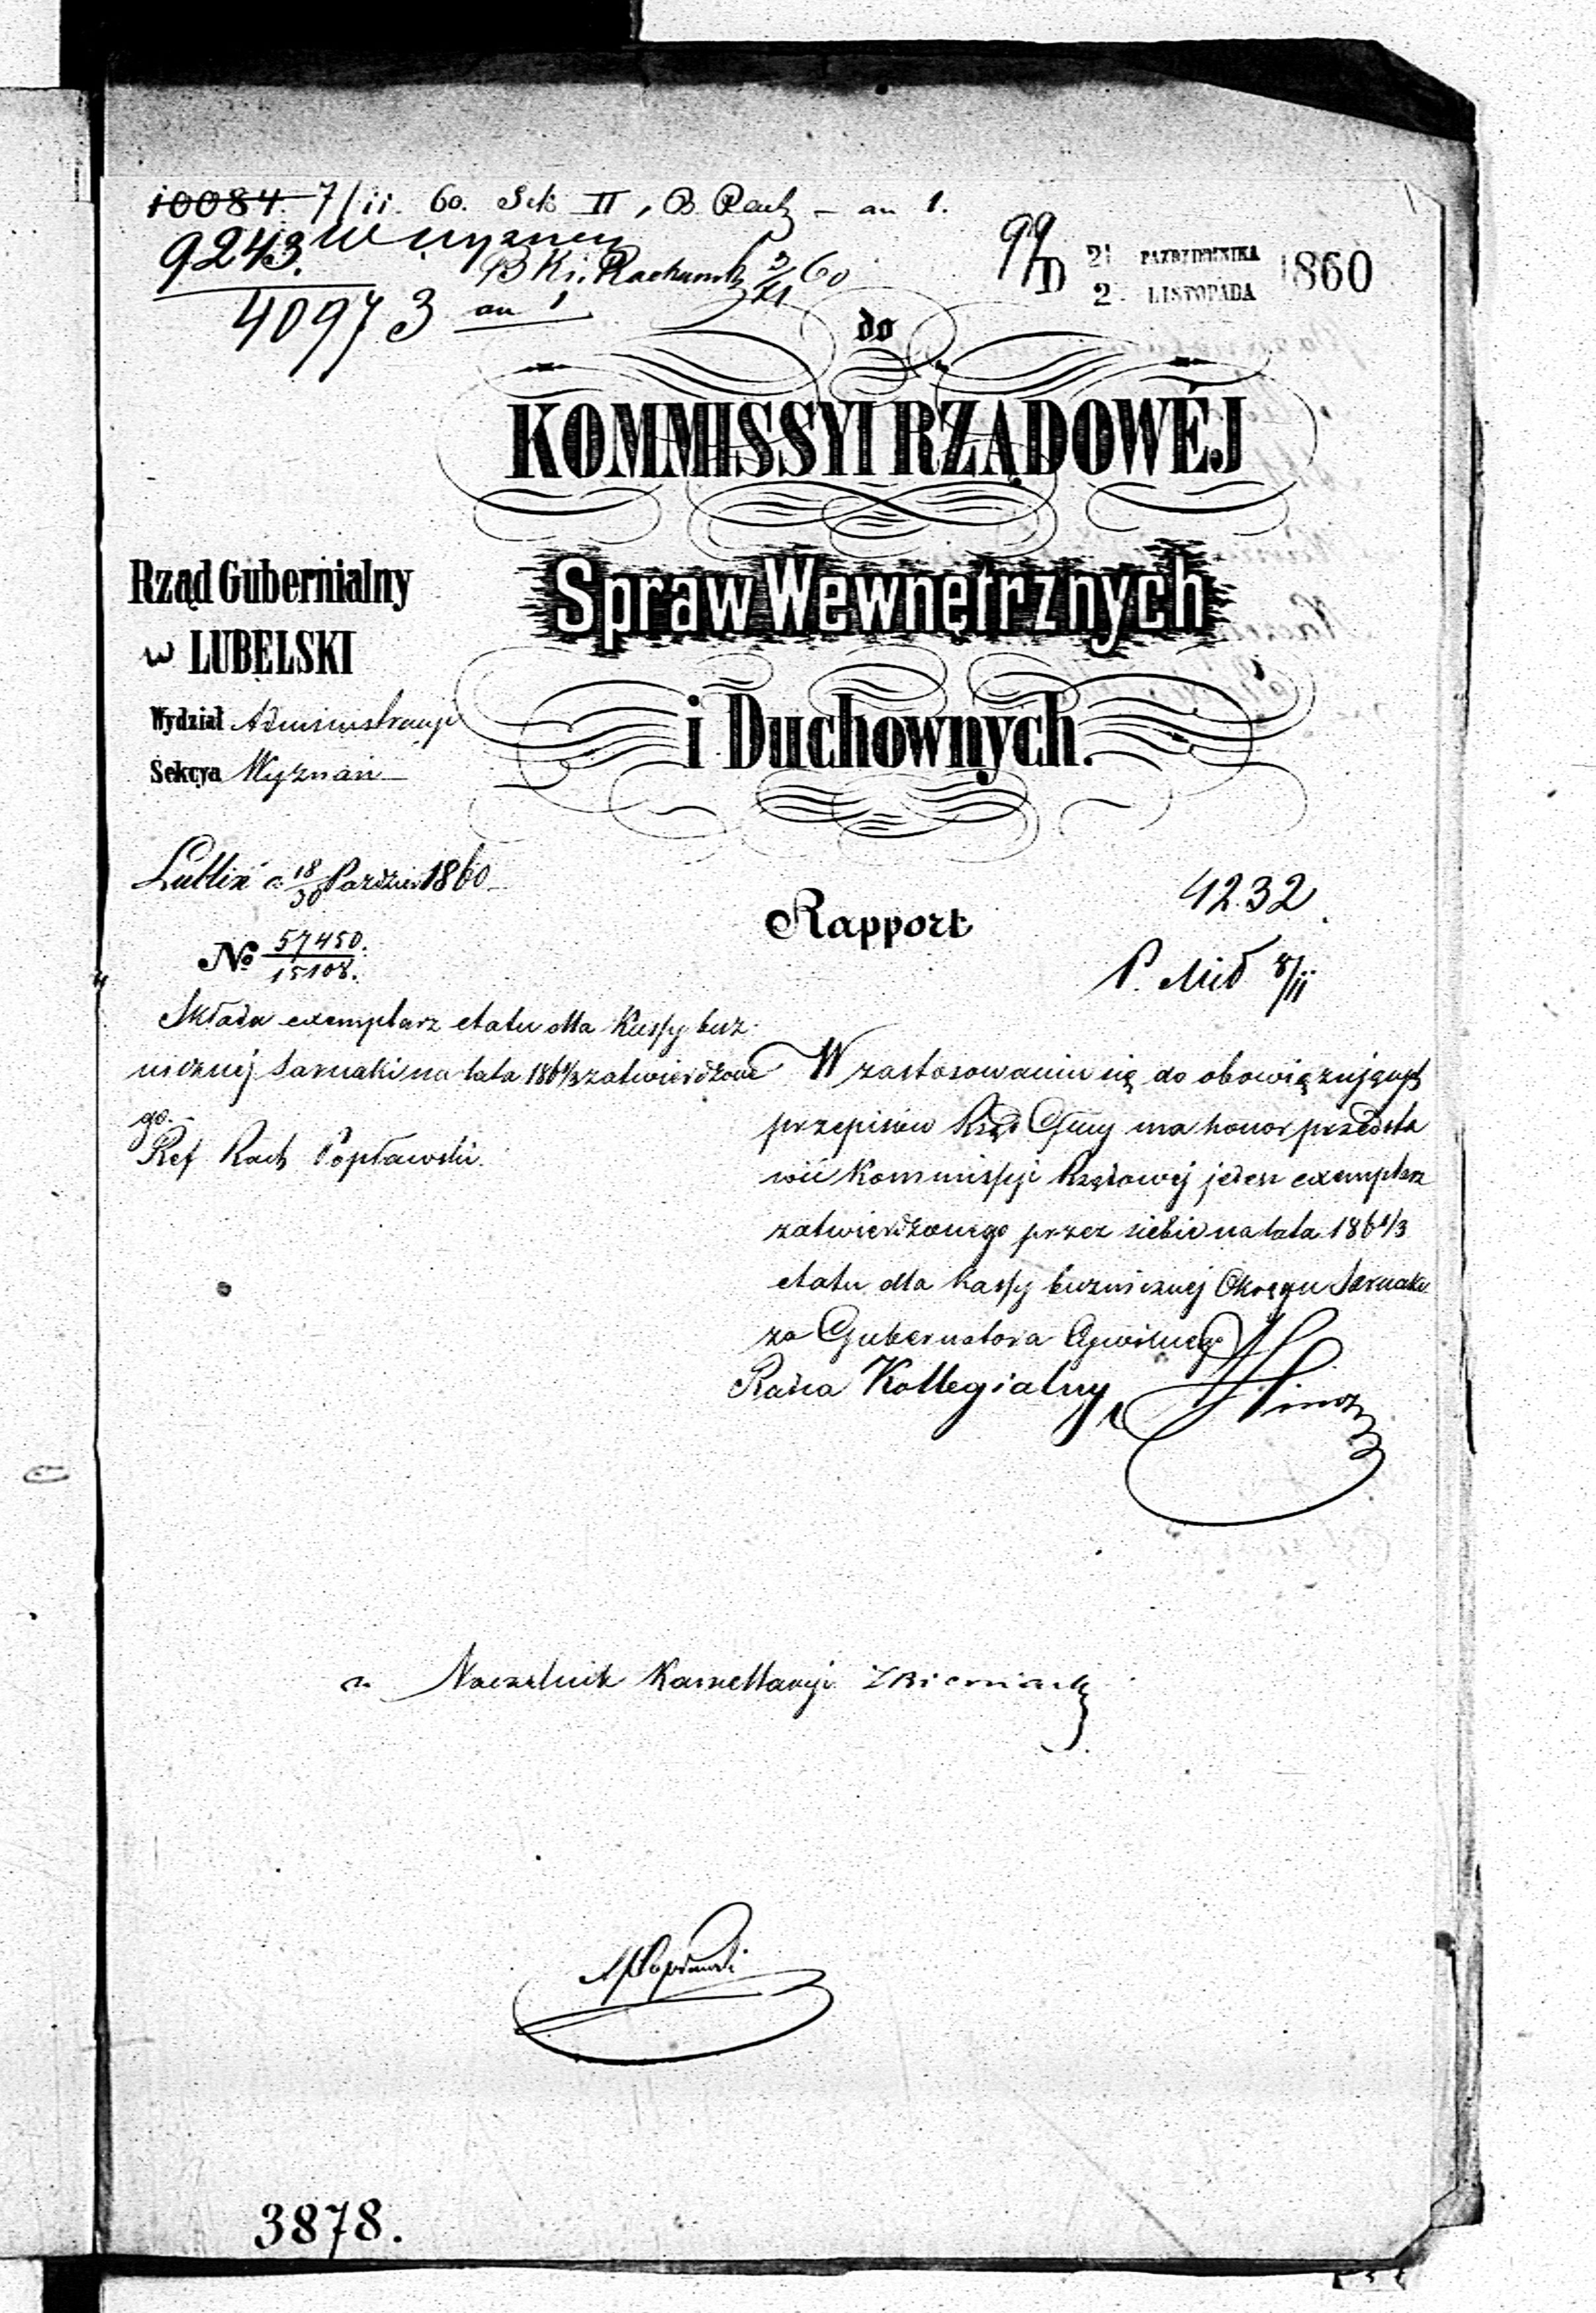 10084. 7/ii. 60. Sek II, B. Rach – an 1.
9243. w wyznen
B Ki. Rachunk 3/XI 60
40973 an 1
99 D 21 PAZDZIERNIKA 1860
2 LISTOPADA
do
KOMMISSYI RZĄDOWÉJ
Spraw Wewnętrznych
i Duchownych.
Rząd Gubernialny
w LUBELSKI
Wydział Administracyi
Sekcya Wyznań
Lublin d. 18/30 Paździer 1860
№ 57450./15108.
Rapport
4232.
P. Mid 8/ii
Składa exemplarz etatu dla Kassy buż-
nicznej Sarnaki na lata 1861/3 zatwierdzone
go.–
Ref Rach Popławski.
W zastosowaniu się do obowiązujących
przepisów Rząd Gny ma honor przedsta
wić Kommissyi Rządowej jeden exemplarz
zatwierdzonego przez siebie na lata 1861/3
etatu dla Kassy bużnicznej Okręgu Sarnaki
za Gubernatora Cywilnego
Radca Kollegialny
Naczelnik Kancellaryi
APopławski
3878.